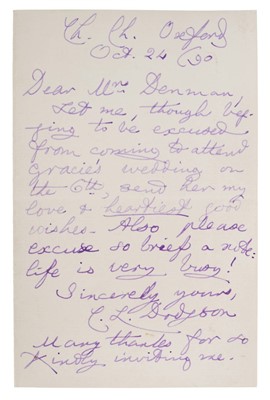 Ch. Ch. Oxford
Oct. 24/90
Dear Mrs. Denman,
Let me, though beg-
ging to be excused
from coming to attend
Gracie's wedding on
the 6th, send her my
love & heartiest good
wishes. Also please
excuse so brief a note:
life is very busy!
Sincerely yours,
C. L. Dodgson
Many thanks for so
kindly inviting me.